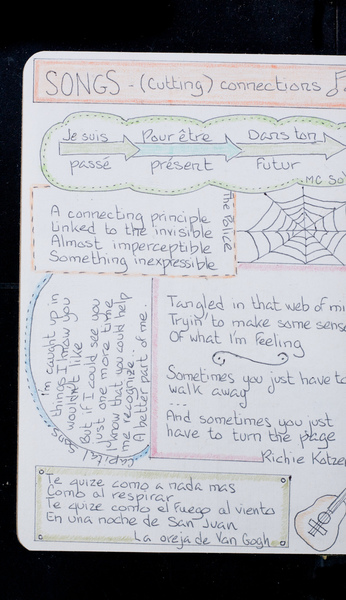 SONGS - (Cutting) connections
Je suis Pour être Dans ton
passé présent Futur
MC So
A connecting principle
Linked to the invisible
Almost imperceptible
Something inexpressible
The Police
Tangled in that web of mi
Tryin' to make some sense
Of what I'm feeling
Sometimes you just have to
walk away
...
And sometimes you just
have to turn the page
Richie Kotzen
I'm caught up in
things I know you
wouldn't like
But if I could see you
just one more time
I know that you could help
me recognize...
A better part of me.
Capital
Te quize como a nada mas
Como al respirar
Te quize como el Fuego al viento
En una noche de San Juan
La oreja de Van Gogh